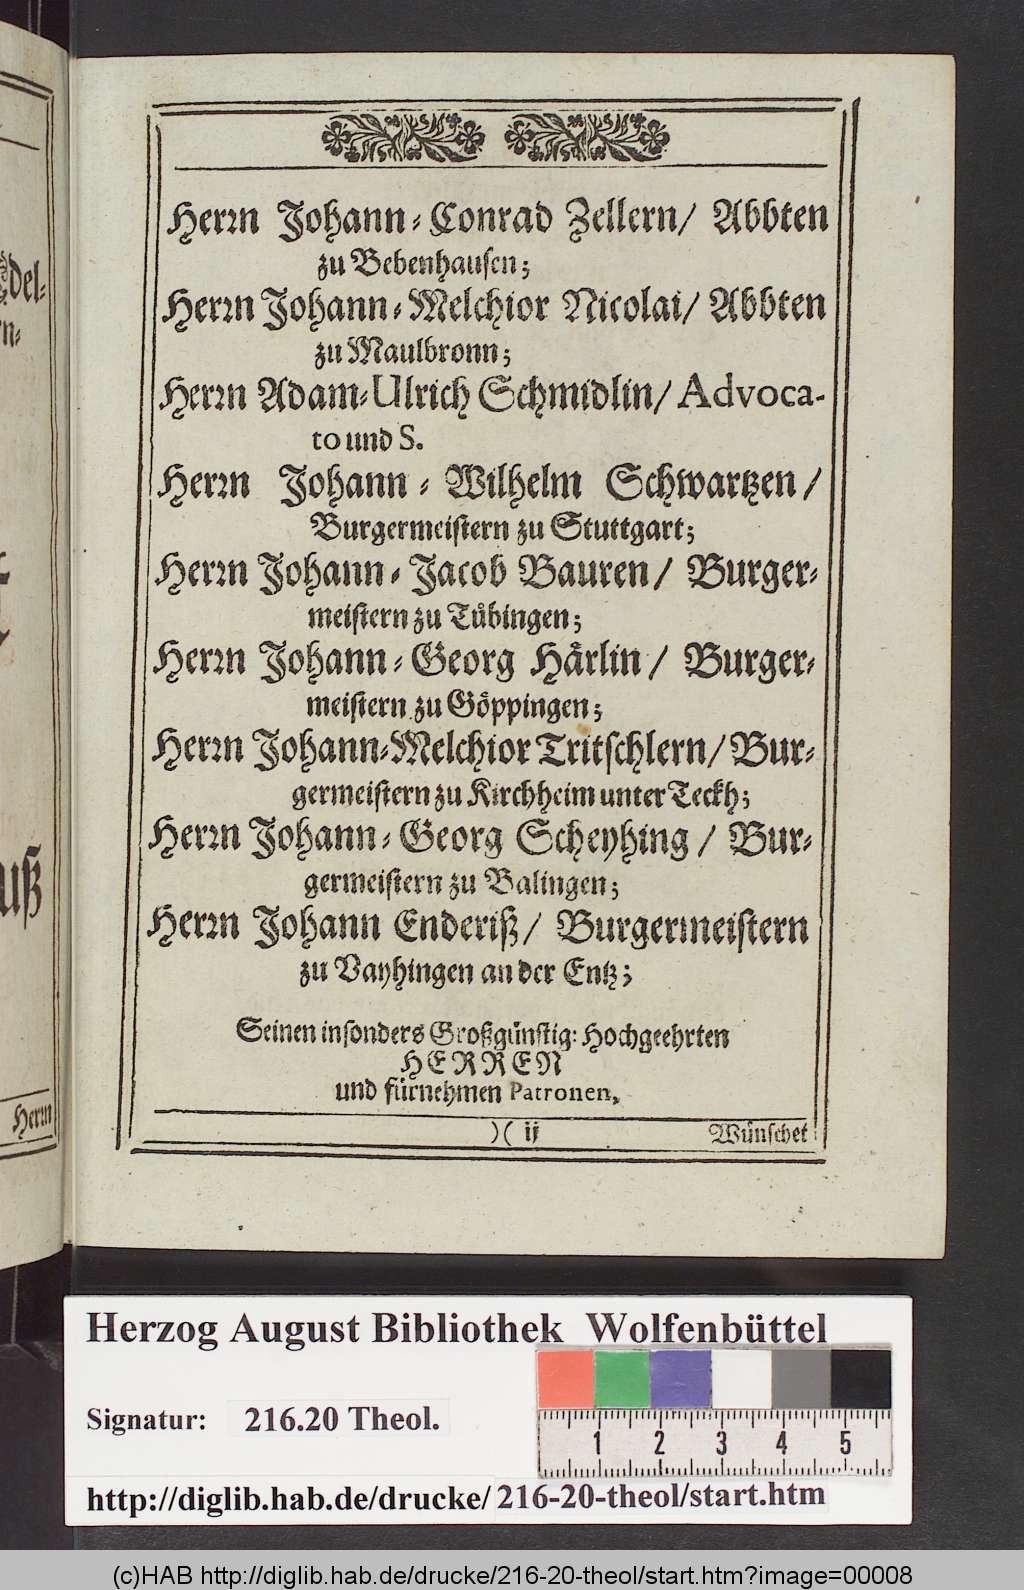 Herrn Johann-Conrad Zellern/ Abbten
zu Bebenhausen;
Herrn Johann-Melchior Nicolai/ Abbten
zu Maulbronn;
Herrn Adam-Ulrich Schmidlin/ Advoca-
to und S.
Herrn Johann-Wilhelm Schwartzen/
Burgermeistern zu Stuttgart;
Herrn Johann-Jacob Bauren/ Burger-
meistern zu Tübingen;
Herrn Johann-Georg Härlin/ Burger-
meistern zu Göppingen;
Herrn Johann-Melchior Tritschlern/ Bur-
germeistern zu Kirchheim unter Teckh;
Herrn Johann-Georg Scheyhing/ Bur-
germeistern zu Balingen;
Herrn Johann Enderiß/ Burgermeistern
zu Vayhingen an der Entz;
Seinen insonders Großgünstig: Hochgeehrten
HERREN
und fürnehmen Patronen,
)( ij Wünschet
del-
n-
uß
Herrn
Herzog August Bibliothek Wolfenbüttel
Signatur: 216.20 Theol.
1 2 3 4 5
http://diglib.hab.de/drucke/216-20-theol/start.htm
(c)HAB http://diglib.hab.de/drucke/216-20-theol/start.htm?image=00008